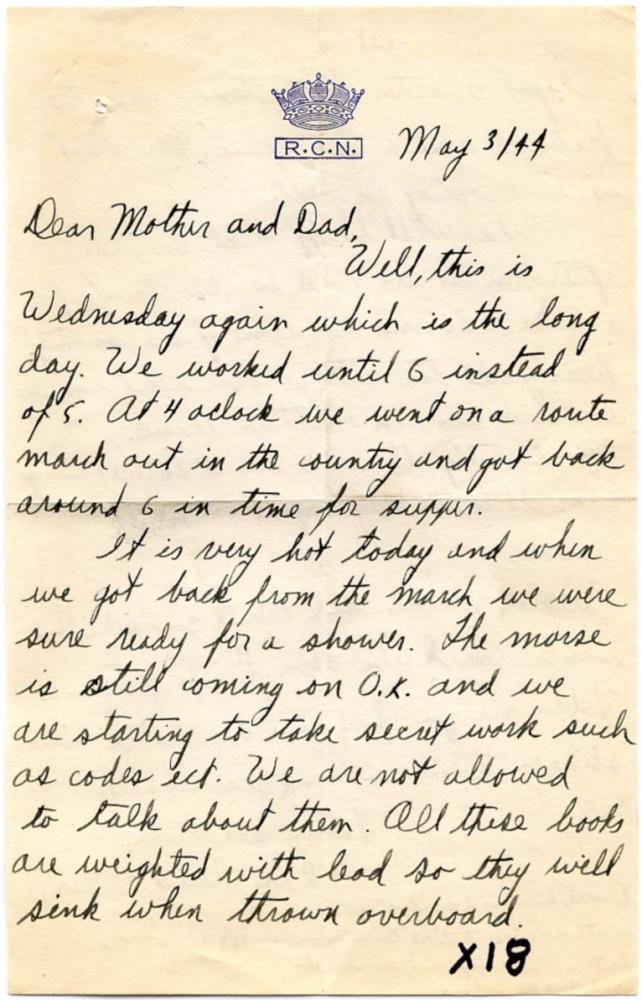 R.C.N.
May 3/44
Dear Mother and Dad,
Well, this is
Wednesday again which is the long
day. We worked until 6 instead
of 5. At 4 oclock we went on a route
march out in the country and got back
around 6 in time for supper.
It is very hot today and when
we got back from the march we were
sure ready for a shower. The morse
is still coming on O.K. and we
are starting to take secret work such
as codes ect. We are not allowed
to talk about them. All these books
are weighted with lead so they will
sink when thrown overboard.
X18